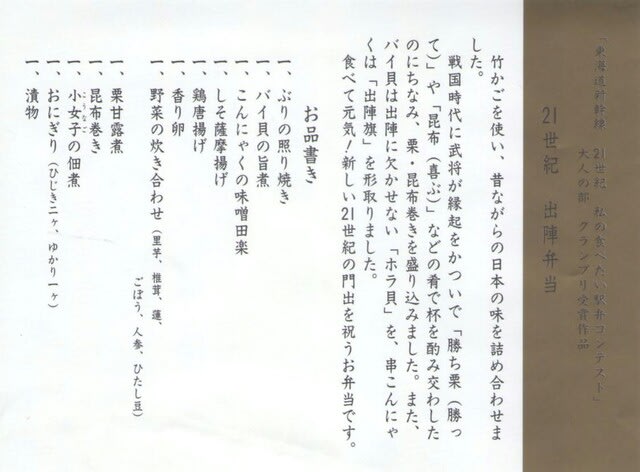 「東海道新幹線 21世紀 私の食べたい駅弁コンテスト」
大人の部 グランプリ受賞作品
21世紀 出陣弁当
竹かごを使い、昔ながらの日本の味を詰め合わせま
した。
戦国時代に武将が縁起をかついで「勝ち栗（勝っ
て）」や「昆布（喜ぶ）」などの肴で杯を酌み交わした
のにちなみ、栗・昆布巻きを盛り込みました。また、
バイ貝は出陣に欠かせない「ホラ貝」を、串こんにゃ
くは「出陣旗」を形取りました。
食べて元気！新しい21世紀の門出を祝うお弁当です。
お品書き
一、ぶりの照り焼き
一、バイ貝の旨煮
一、こんにゃくの味噌田楽
一、しそ薩摩揚げ
一、鶏唐揚げ
一、香り卵
一、野菜の炊き合わせ（里芋、椎茸、蓮、
ごぼう、人参、ひたし豆）
一、栗甘露煮
一、昆布巻き
一、小女子の佃煮
こうなご
一、おにぎり（ひじき二ヶ、ゆかり一ヶ）
一、漬物